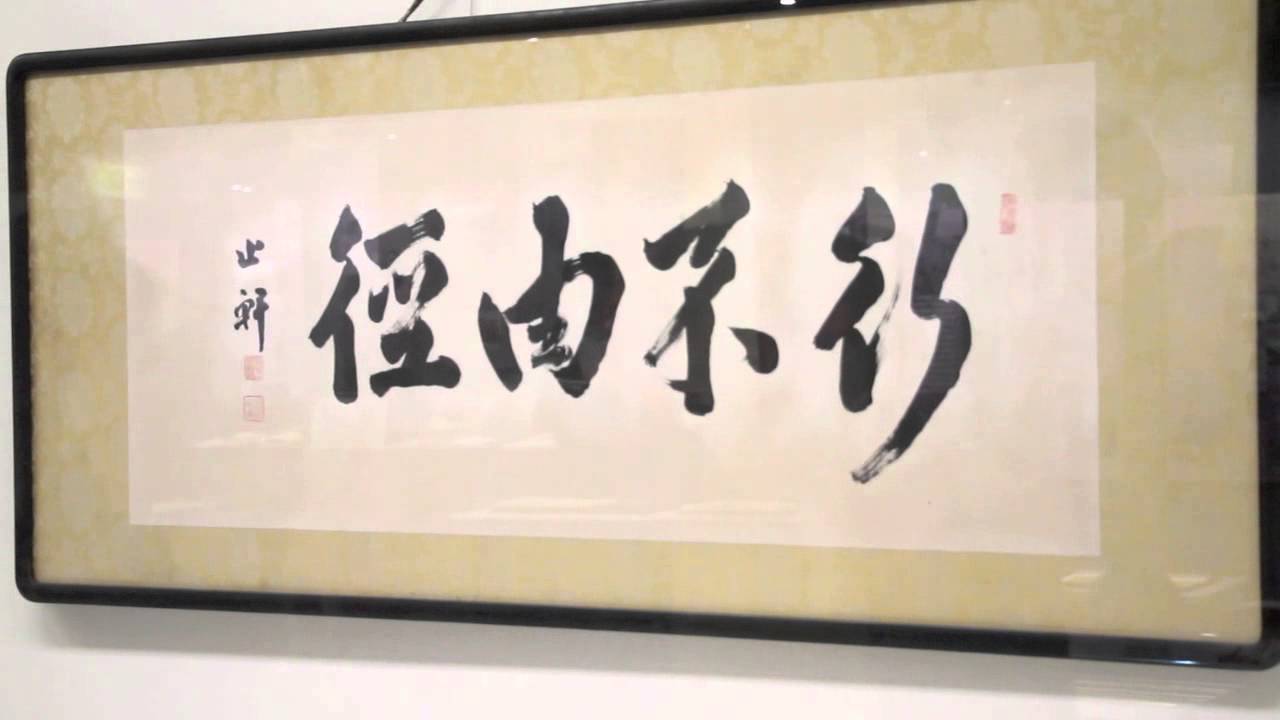 行不由徑
止軒